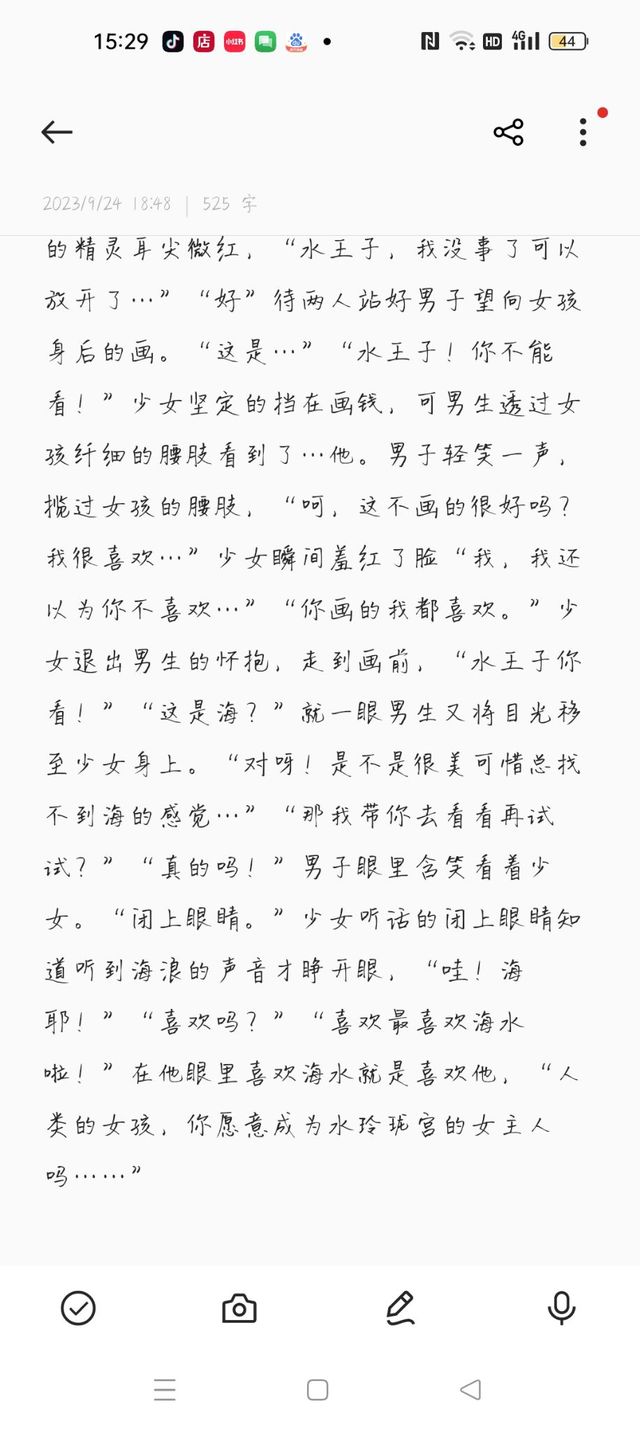 15:29 店 小红书 N HD 4G 44
2023/9/24 18:48 | 525 字
的精灵耳尖微红，“水王子，我没事了可以
放开了…”“好”待两人站好男子望向女孩
身后的画。“这是…”“水王子！你不能
看！”少女坚定的挡在画钱，可男生透过女
孩纤细的腰肢看到了…他。男子轻笑一声，
揽过女孩的腰肢，“呵，这不画的很好吗？
我很喜欢…”少女瞬间羞红了脸“我，我还
以为你不喜欢…”“你画的我都喜欢。”少
女退出男生的怀抱，走到画前，“水王子你
看！”“这是海？”就一眼男生又将目光移
至少女身上。“对呀！是不是很美可惜总找
不到海的感觉…”“那我带你去看看再试
试？”“真的吗！”男子眼里含笑看着少
女。“闭上眼睛。”少女听话的闭上眼睛知
道听到海浪的声音才睁开眼，“哇！海
耶！”“喜欢吗？”“喜欢最喜欢海水
啦！”在他眼里喜欢海水就是喜欢他，“人
类的女孩，你愿意成为水玲珑宫的女主人
吗……”